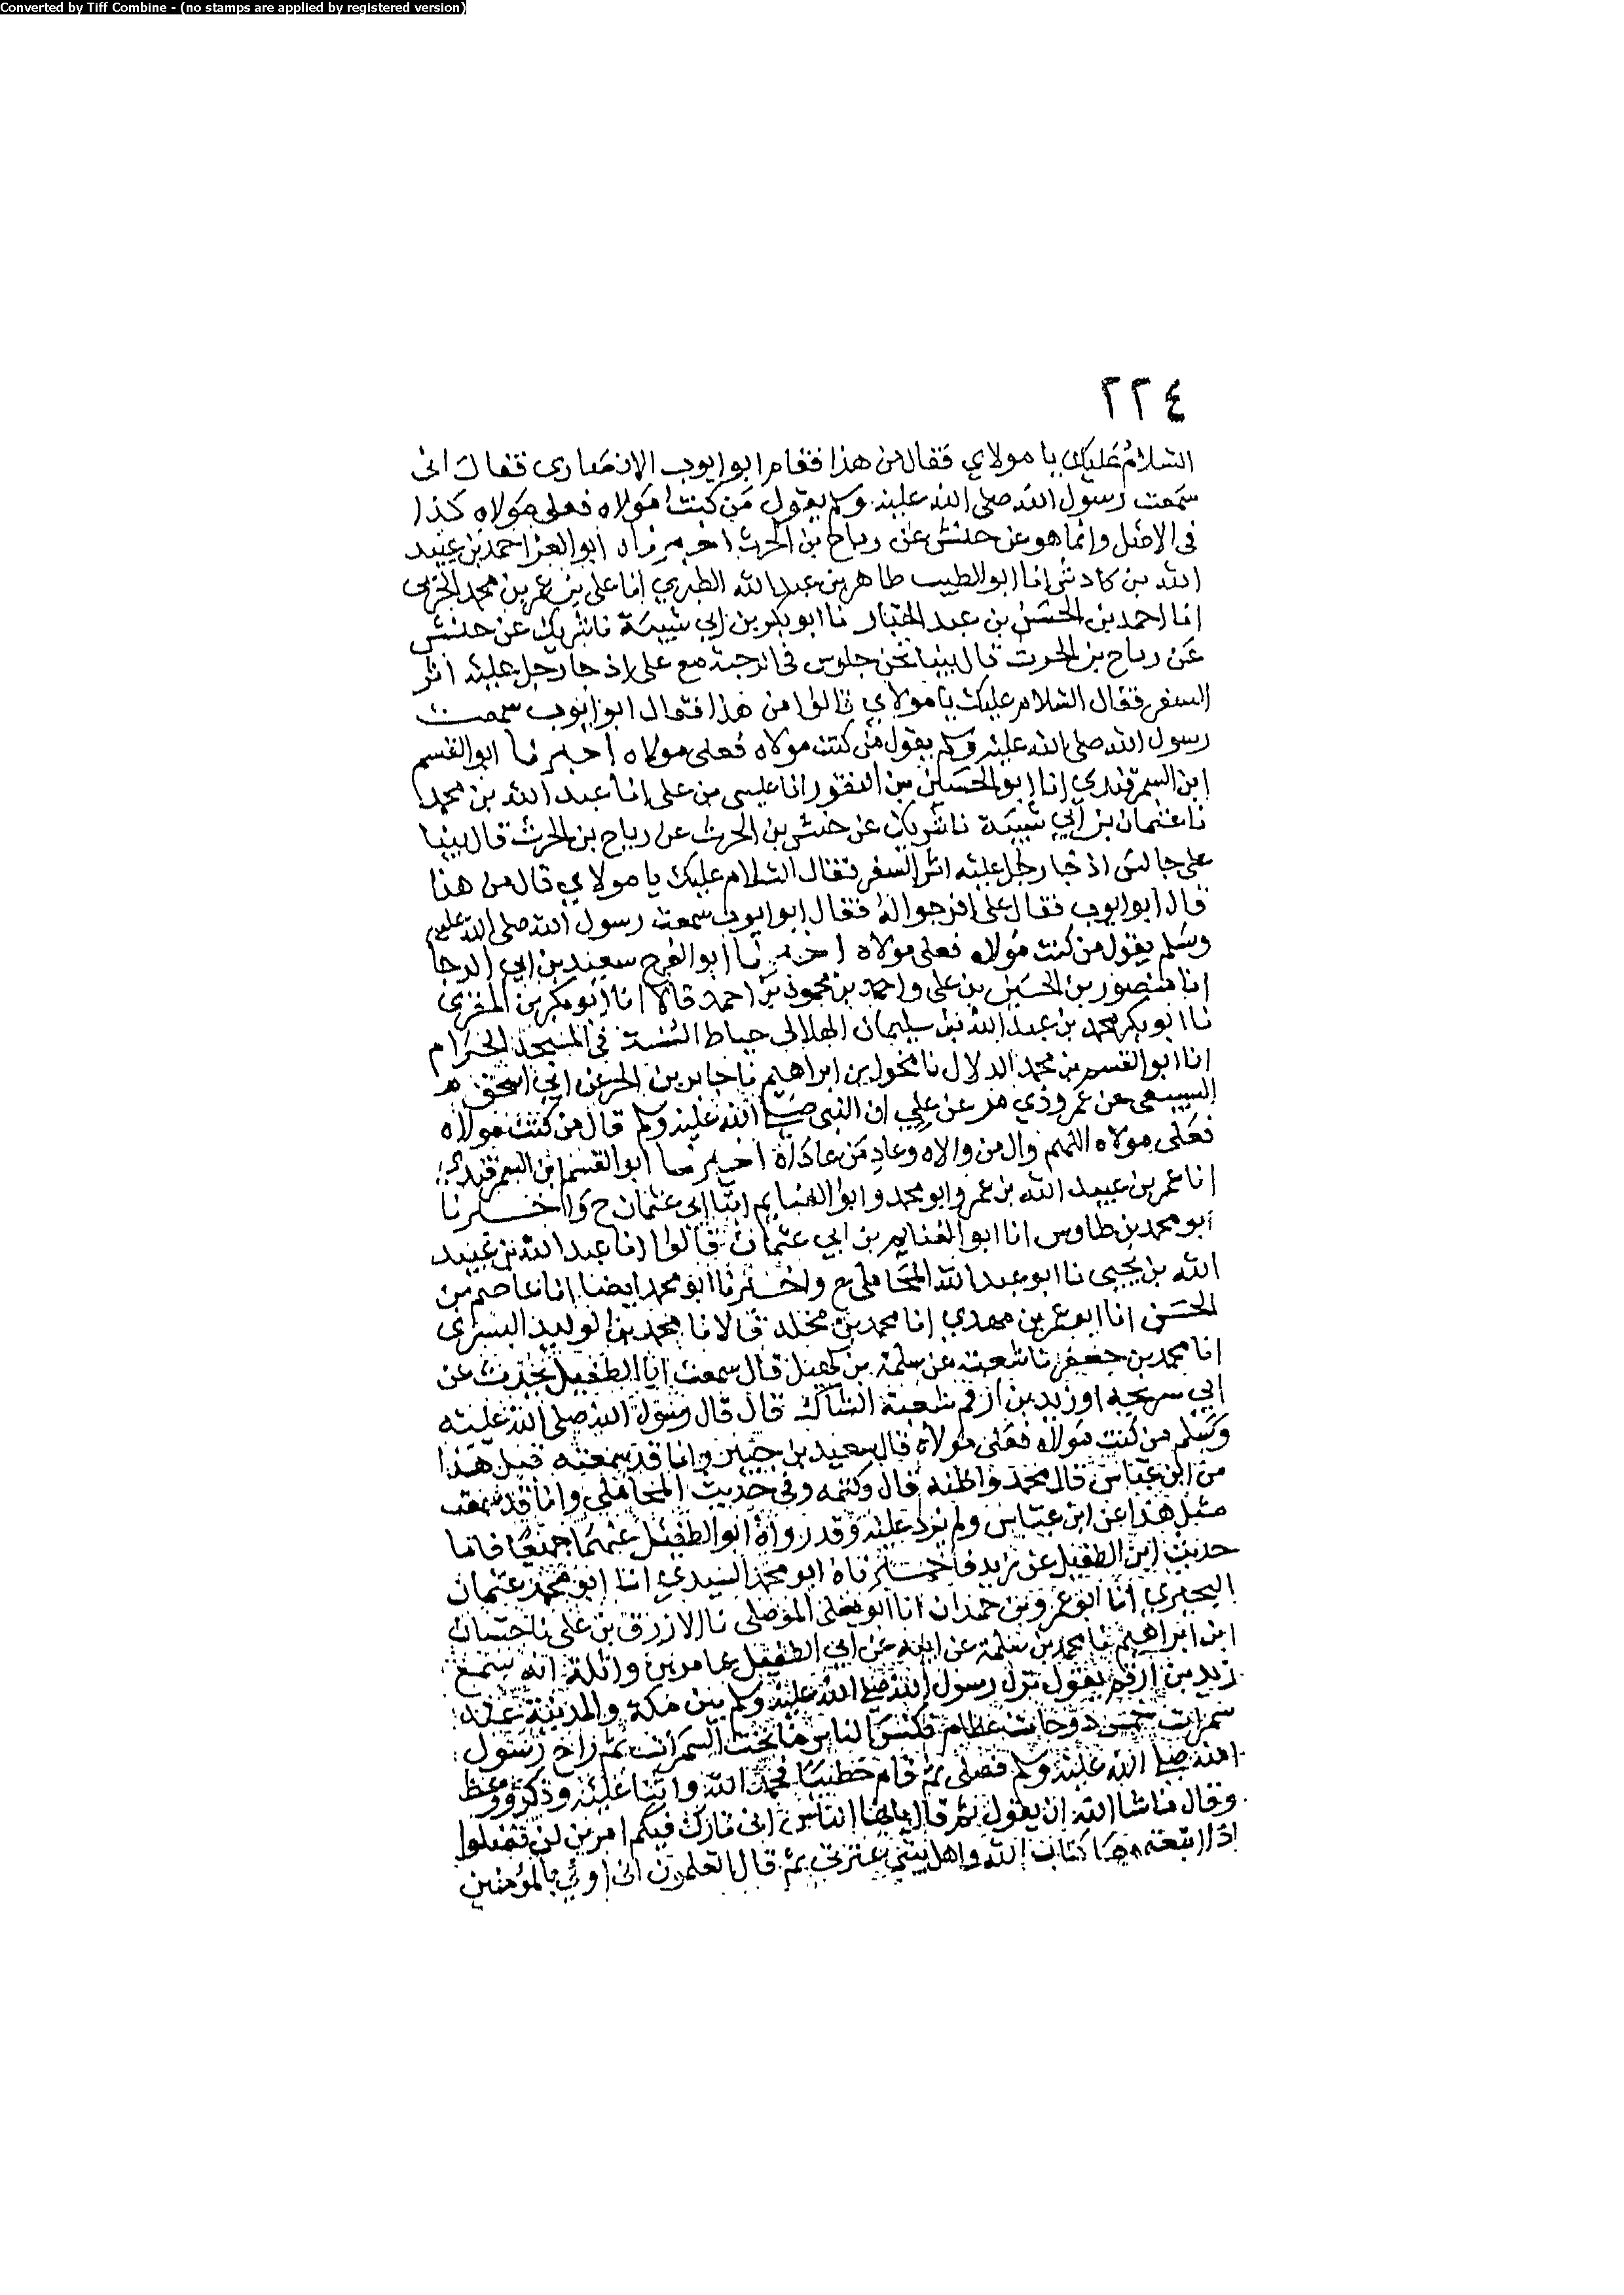 Converted by Tiff Combine - (no stamps are applied by registered version)
٢٢٤
السلام عليك يا مولاي فقال من هذا فقام ابو ايوب الانصارى فقال انى
سمعت رسول الله صلى الله عليه وسلم يقول من كنت مولاه فعلى مولاه كذا
فى الاصل وانما هو عن حنش عن رياح بن الحرث اخبرناه ابو العز احمد بن عبيد
الله بن كادش انا ابو الطيب طاهر بن عبد الله الطبري انا على بن عمر بن محمد الحربى
انا احمد بن الحسن بن عبد الجبار نا ابو بكر بن ابي شيبة نا شريك عن حنش
عن رياح بن الحرث قال بينا نحن جلوس فى الرحبة مع على اذ جا رجل عليه اثر
السفر فقال السلام عليك يا مولاي قالوا من هذا فقال ابو ايوب سمعت
رسول الله صلى الله عليه وسلم يقول من كنت مولاه فعلى مولاه اخبرنا ابو القسم
ابن السمرقندي انا ابو الحسين بن النقور انا عيسى بن على انا عبد الله بن محمد
نا عثمان بن ابي شيبة نا شريك عن حنش بن الحرث عن رياح بن الحرث قال بينا
على جالس اذ جا رجل عليه اثر السفر فقال السلام عليك يا مولاي قال من هذا
قال ابو ايوب فقال على افرجوا له فقال ابو ايوب سمعت رسول الله صلى الله عليه
وسلم يقول من كنت مولاه فعلى مولاه اخبرنا ابو الفرج سعيد بن ابي الرجا
انا منصور بن الحسين بن على واحمد بن محمود بن احمد قالا انا ابو بكر بن المقرئ
نا ابو بكر محمد بن عبد الله بن سليمان الهلالى خياط السنة فى المسجد الحرام
انا ابو القسم بن محمد الدلال نا مخول بن ابراهيم نا جابر بن الحر عن ابي اسحق
السبيعى عن عمرو ذي مر عن علي ان النبى صلى الله عليه وسلم قال من كنت مولاه
فعلى مولاه اللهم وال من والاه وعاد من عاداه اخبرنا ابو القسم ابن السمرقندي
انا عمر بن عبيد الله بن عمر وابو محمد وابو الغنايم ابنا ابى عثمان ح واخبرنا
ابو محمد بن طاوس انا ابو الغنايم بن ابي عثمان قالوا انا عبد الله بن عبيد
الله بن يحيى نا ابو عبد الله المحاملى ح واخبرنا ابو محمد ايضا انا عاصم بن
الحسن انا ابو عمر بن مهدي انا محمد بن مخلد قالا نا محمد بن الوليد البسرى
انا محمد بن جعفر نا شعبة عن سلمة بن كهيل قال سمعت ابا الطفيل يحدث عن
ابي سريحه او زيد بن ارقم شعبة الشاك قال قال رسول الله صلى الله عليه
وسلم من كنت مولاه فعلى مولاه قال سعيد بن جبير وانا قد سمعته قبل هذا
من ابن عباس قال محمد واظنه قال وكتمه وفى حديث المحاملى وانا قد سمعت
مثل هذا عن ابن عباس ولم يزد عليه وقد رواه ابو الطفيل عنهما جميعا فاما
حديث ابى الطفيل عن زيد فاخبرناه ابو محمد السيدي انا ابو محمد عثمان
البحيري انا ابو عمرو بن حمدان انا ابو يعلى الموصلى نا الازرق بن على نا حسان
ابن ابراهيم نا محمد بن سلمة عن ابيه عن ابي الطفيل عامر بن واثلة انه سمع
زيد بن ارقم يقول نزل رسول الله صلى الله عليه وسلم بين مكة والمدينة عند
سمرات خمس دوحات عظام فكنس الناس ما تحت السمرات ثم راح رسول
الله صلى الله عليه وسلم فصلى ثم قام خطيبا فحمد الله واثنا عليه وذكر ووعظ
وقال ما شا الله ان يقول ثم قال يايها الناس انى تارك فيكم امرين لن تضلوا
اذا اتبعتموهما كتاب الله واهل بيتى عترتى ثم قال اتعلمون انى اولى بالمؤمنين